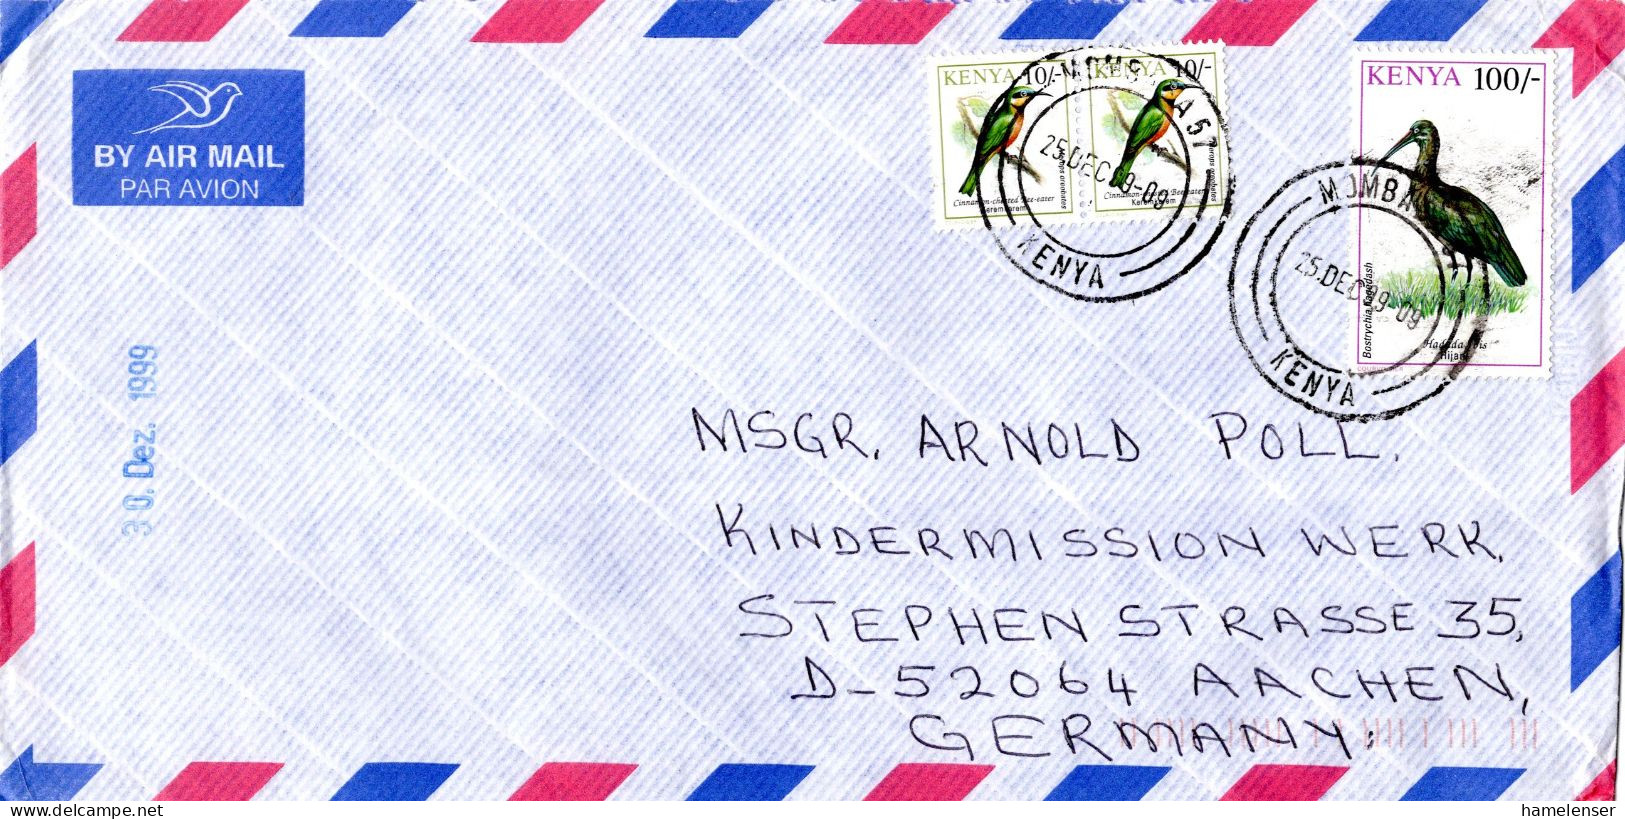 BY AIR MAIL
PAR AVION
KENYA 10/-
Cinnamon-chested Bee-eater
Keremkerem
Merops oreobates
KENYA 10/-
Cinnamon-chested Bee-eater
Keremkerem
Merops oreobates
KENYA 100/-
Bostrychia hagedash
Hadada Ibis
Hijani
25.DEC 99-09
KENYA
MOMBASA
25.DEC 99-09
KENYA
30. Dez. 1999
MSGR. ARNOLD POLL.
KINDERMISSION WERK,
STEPHEN STRASSE 35,
D-52064 AACHEN,
GERMANY.
www.delcampe.net
hamelenser